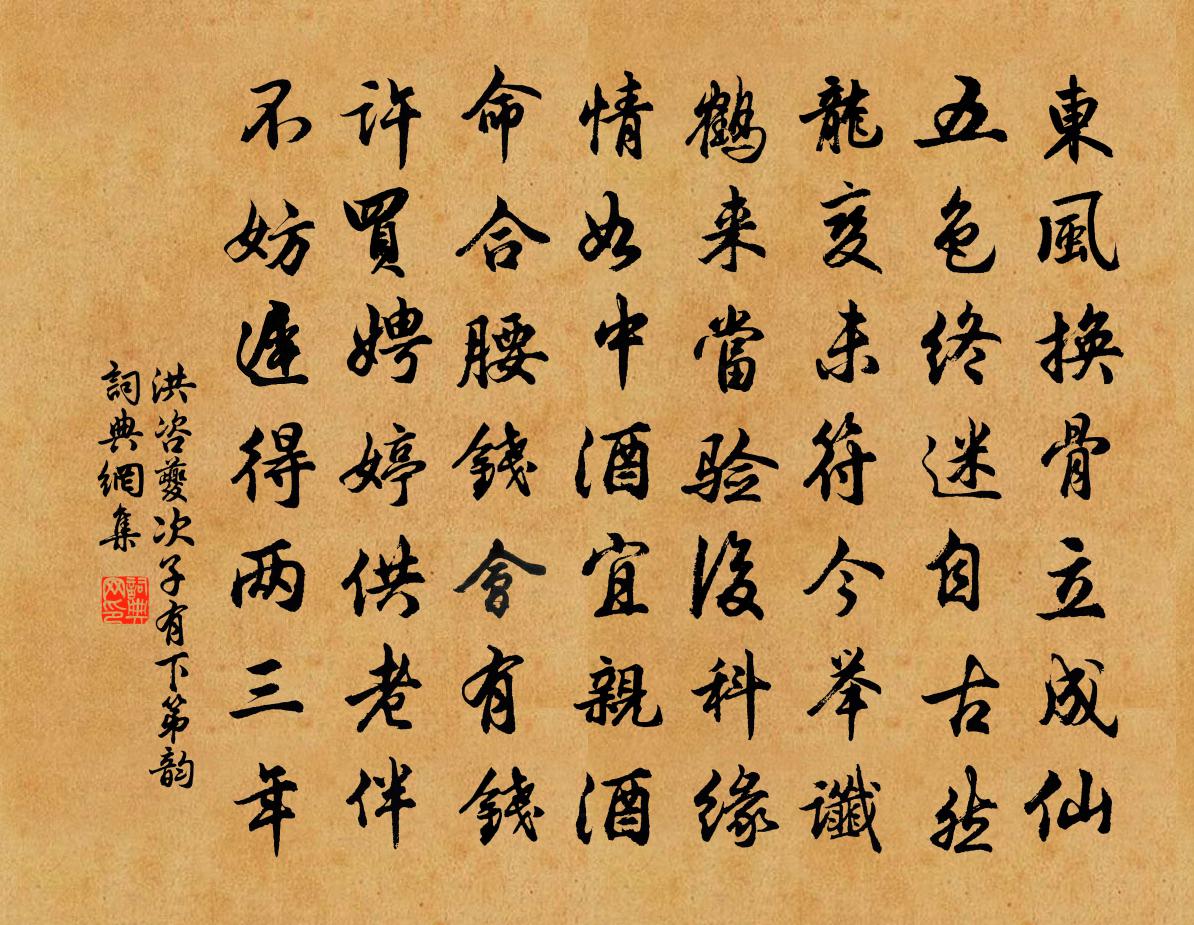 東風換骨立成仙
五色終迷自古然
龍变未符今举讖
鶴来當验後科緣
情如中酒宜親酒
命合腰錢會有錢
許買娉婷供老伴
不妨遲得两三年
洪咨夔次子有下第韵
詞典網集
詞典網印